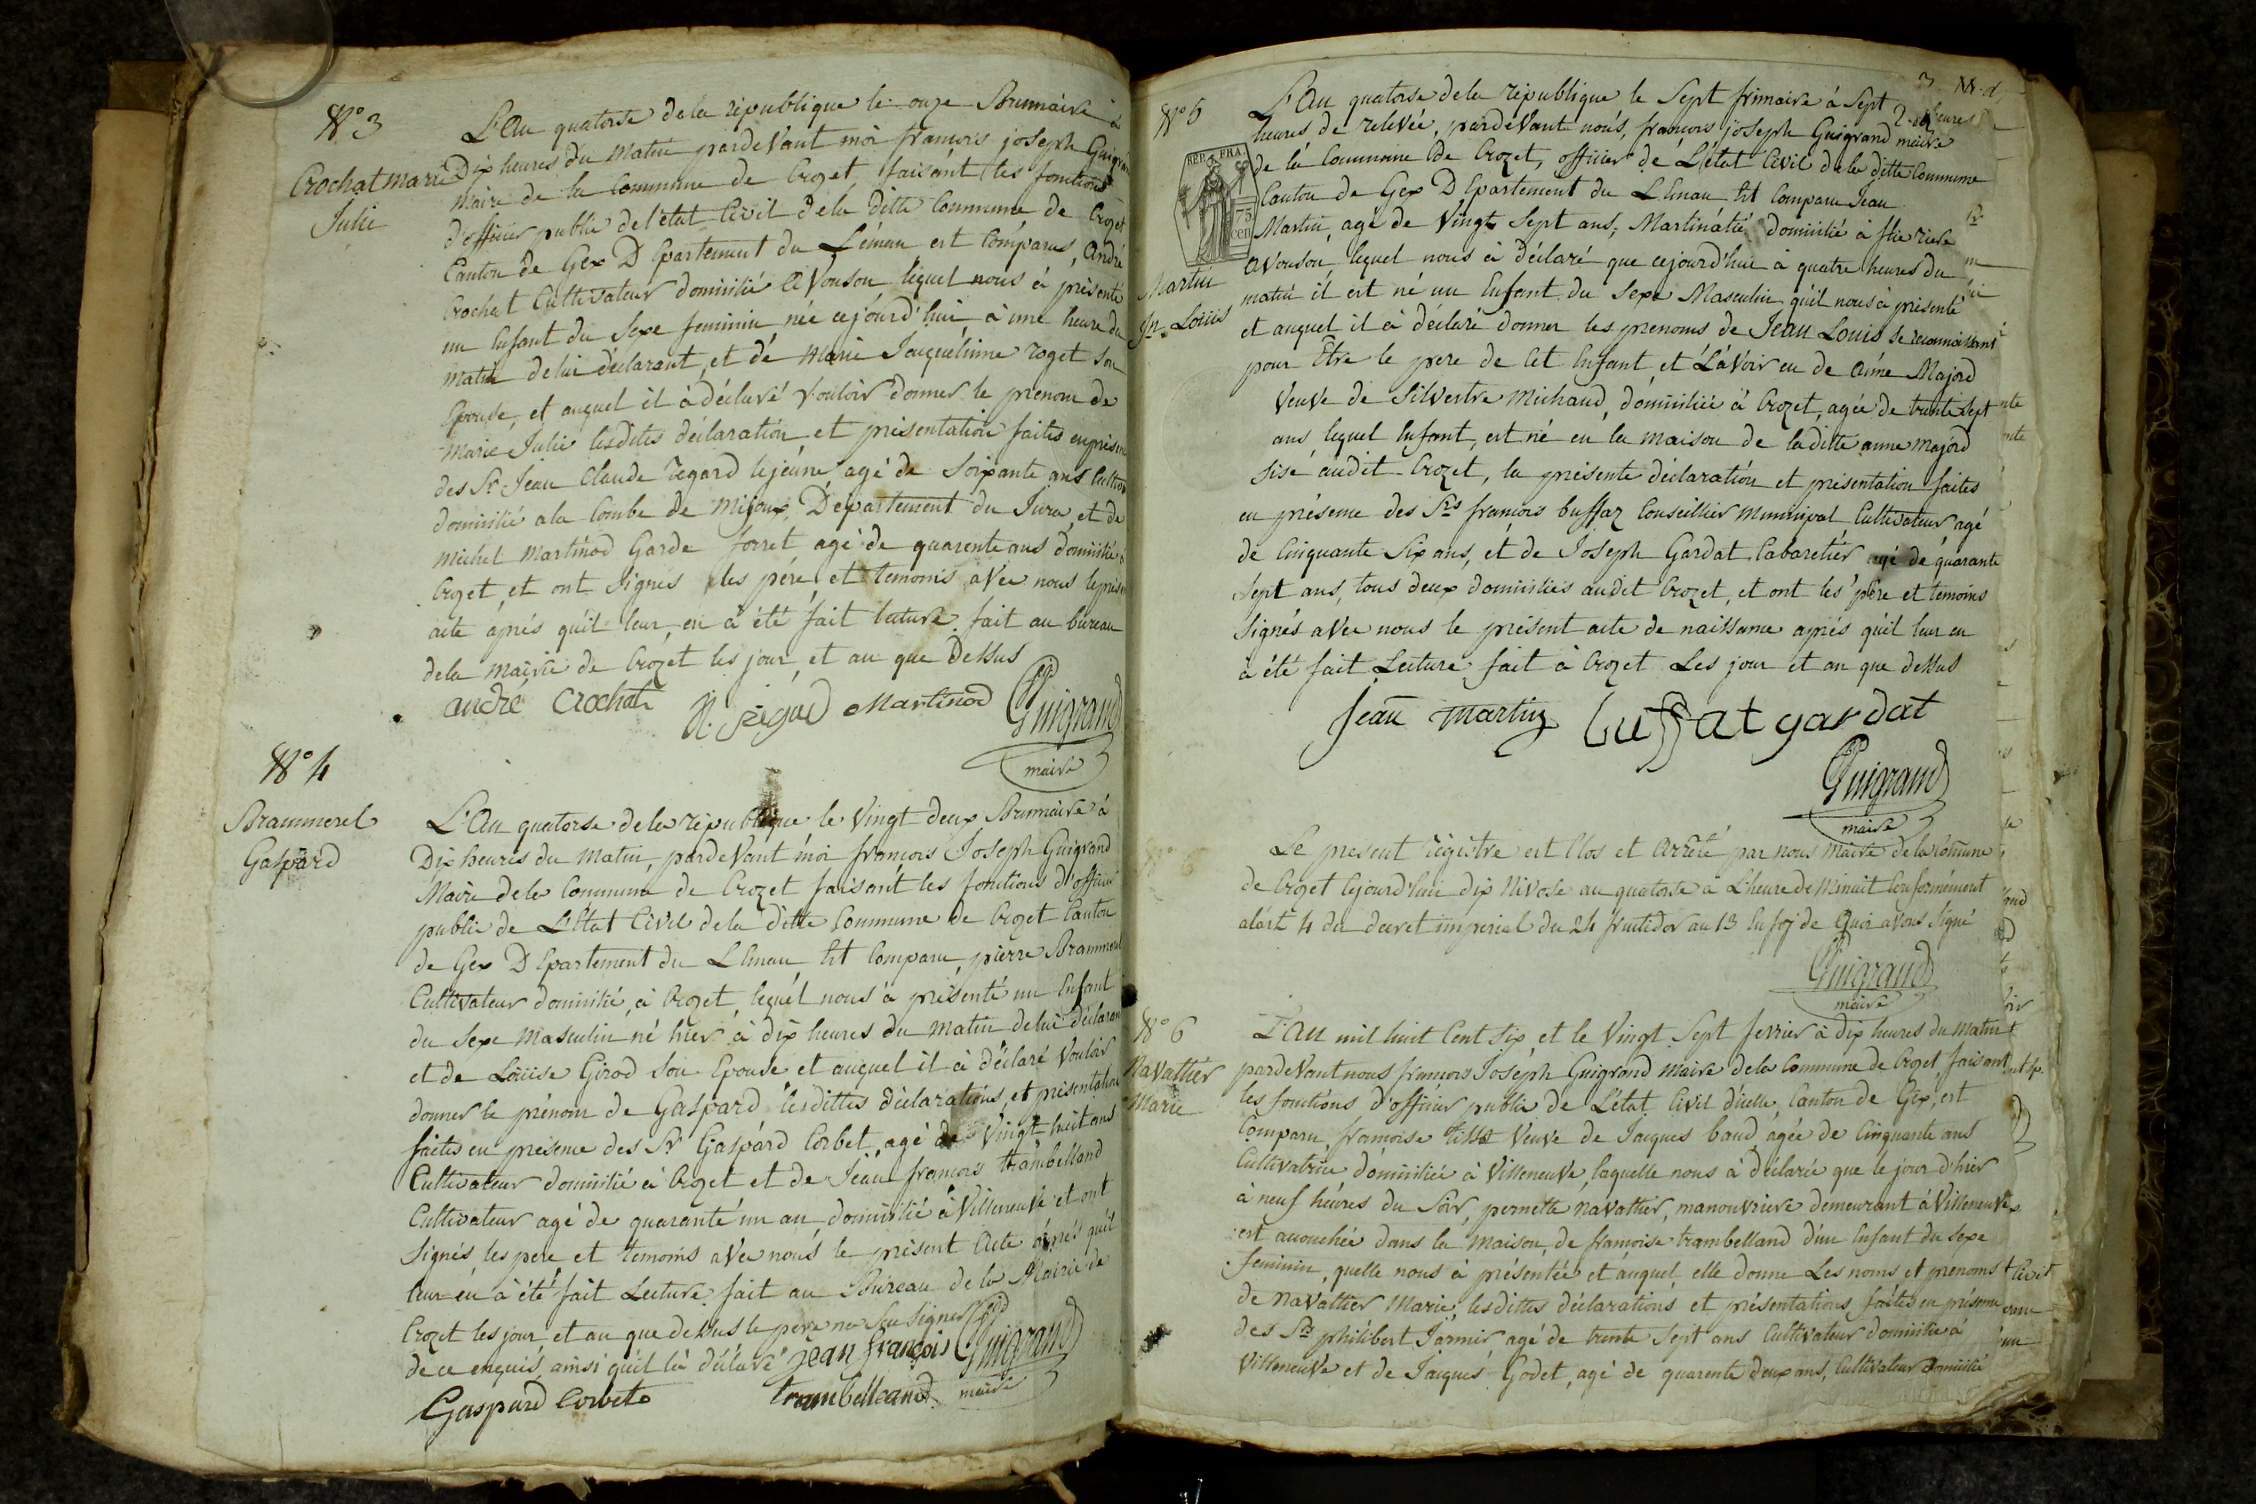 N° 3
Crochat marie
Julie
L'An quatorse de la république le onze Brumaire à
Dix heures du matin pardevant moi françois joseph Guigrand
Maire de la Commune de Crozet, faisant les fonctions
d'officier public de l'état Civil dela ditte Commune de Crozet
Canton de Gex Département du Léman est comparus, André
Crochat Cultivateur domicilié a Vouson lequel nous à présenté
un Enfant du Sexe feminin née cejourd'hui à une heure du
matin delui déclarant, et de Marie Jacqueline roget son
Epouse, et auquel il à déclaré vouloir donner le prenom de
Marie Julie lesdites déclaration et présentation faites en présen
des Sr Jean Claude regard lejeune agé de Soixante ans Cultiv
domicilié ala Combe de Mijoux, Département du Jura, et de
Michel Martinod Garde forret agé de quarente ans domicilié à
Crozet, et ont Signés les pére et temoins avec nous le prés
acte aprés qu'il leur en à été fait lecture. fait au bureau
dela Mairie de Crozet les jour et an que Dessus
andré Crochat Martinod Guigrand
maire
N° 4
Brammerel
Gaspard
L'An quatorse dela république le Vingt deux Brumaire à
Dix heures du Matin, pardevant moi françois Joseph Guigrand
Maire dela Commune de Crozet faisant les fonctions d'officier
public de L'Etat Civil dela ditte Commune de Crozet Canton
de Gex Département du LEman Est Comparu, pierre Brammerel
Cultivateur domicilié, à Crozet, lequel nous à présenté un Enfant
du Sexe Masculin né hier à dix heures du matin delui déclarant
et de Loüise Girod Son Epouse et auquel il à déclaré Vouloir
donner le prénom de Gaspard lesdittes déclarations, et présentation
faites en presence des Sr Gaspard Corbet, agé de Vingt huit ans
Cultivateur domicilié à Crozet et de Jean françois trambelland
Cultivateur agé de quarante un an domicilié à Villeneuve et ont
Signés, les pere et temoins avec nous le présent Acte aprés qu'il
leur en à été fait Lecture. fait au Bureau de la Mairie de
Crozet les jour et an que dessus le père ne Sça Signer
de ce enquis, ainsi qu'il là déclaré Jean françois Guigrand
Gaspard Corbet trambelland maire
3 2.
N° 5
REP. FRA.
75
cen
Martin
Jn Loüis
L'An quatorse dela république le Sept frimaire à Sept
heures de relevée, pardevant nous, françois joseph Guigrand maire
de la Commune de Crozet, officier de L'état Civil dela ditte Commune
Canton de Gex Département du LEman Est Comparu Jean
Martin, agé de Vingt Sept ans, domicilié à
avouson lequel nous à déclaré que cejourd'hui à quatre heures du
matin il est né un Enfant du Sexe Masculin qu'il nous à présenté
et auquel il à déclaré donner les prenoms de Jean Louis se reconnoissant
pour Être le pere de Cet Enfant, et L'avoir eu de Aimé Majord
Veuve de Silvestre Michaud, domiciliée à Crozet, agée de trente Sept
ans lequel Enfant, est né en la Maison de laditte anne Majord
Sise audit Crozet, la présente déclaration et présentation faites
en présence des Srs françois buffaz Conseillier Municipal Cultivateur agé
de Cinquante Six ans, et de Joseph Gardat Cabaretier agé de quarante
Sept ans, tous deux domiciliés audit Crozet, et ont les pere et temoins
Signés avec nous le présent acte de naissance aprés qu'il leur en
à été fait Lecture. fait à Crozet Les jour et an que dessus
Jean Martin buffat gardat
Guigrand
maire
Le present régistre est Clos et Arreté par nous Maire dela Commune
de Crozet cejourd'hui dix Nivose an quatorse à L'heure de Minuit Conformément
alart 4 du decret imperial du 24 fructidor an 13 En foy de Quoi avons Signé
Guigrand
maire
N° 6
Navattier
Marie
L'An mil huit Cent Six, et le Vingt Sept fevrier à dix heures du Matin
pardevant nous françois Joseph Guigrand Maire dela Commune de Crozet, faisant
les fonctions d'officier public de L'état Civil d'icelle, Canton de Gex, est
Comparu, françoise Veuve de Jacques baud agée de Cinquante ans
Cultivatrice domiciliée à Villeneuve, laquelle nous à déclarée que le jour d'hier
à neuf heures du Soir, pernette navattier, manouvriere demeurant à Villeneuve
est accouchée dans la Maison, de françoise trambelland d'un Enfant du Sexe
feminin, quelle nous à présentée et auquel elle donne Les noms et prenoms
de navattier Marie, lesdittes déclarations et présentations faites en présence
des Srs philibert Jarmir agé de trente Sept ans Cultivateur domicilié à
Villeneuve et de Jacques Godet, agé de quarente deux ans, Cultivateur Domicilié